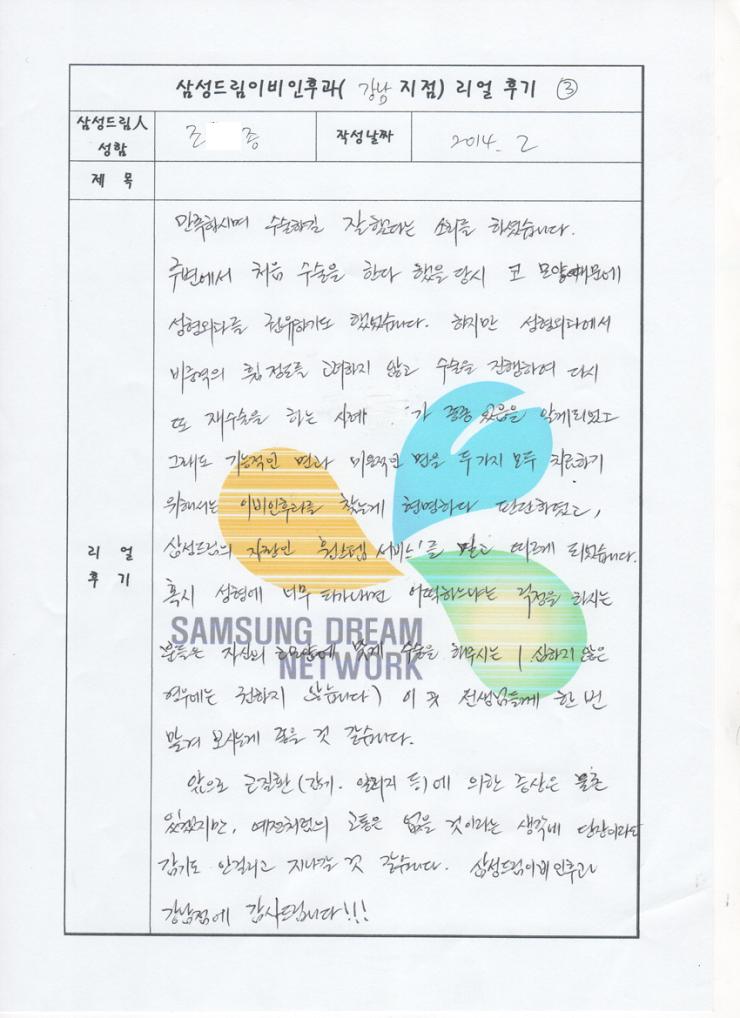 삼성드림이비인후과( 강남 지점) 리얼 후기 ③
삼성드림人 성함 조 종 작성날짜 2014. 2
제 목
리 얼 후 기
만족하시며 수술하길 잘했다는 소리를 하셨습니다.
주변에서 처음 수술을 한다 했을 당시 코 모양때문에
성형외과를 권유하기도 했었습니다. 하지만 성형외과에서
비중격의 휨정도를 고려하지 않고 수술을 진행하여 다시
또 재수술을 하는 사례 가 종종 있음을 알게되었고
그래도 기능적인 면과 미용적인 면을 두가지 모두 치료하기
위해서는 이비인후과를 찾는게 현명하다 판단하였고,
삼성드림의 자랑인 '원스텝 서비스'를 믿고 따르게 되었습니다.
혹시 성형에 너무 티가나면 어떡하느냐는 걱정을 하시는
분들은 자신의 코모양에 맞게 수술을 해주시는 ( 심하지 않은
경우에는 권하지 않습니다 ) 이 곳 선생님들께 한 번
맡겨 보시는게 좋을 것 같습니다.
앞으로 근질환 ( 알러지 등)에 의한 증상은 물론
있겠지만, 예전처럼의 고통은 없을 것이라는 생각에
감기도 안걸리고 지나갈 것 같습니다. 삼성드림이비인후과
강남점에 감사드립니다!!!
SAMSUNG DREAM
NETWORK